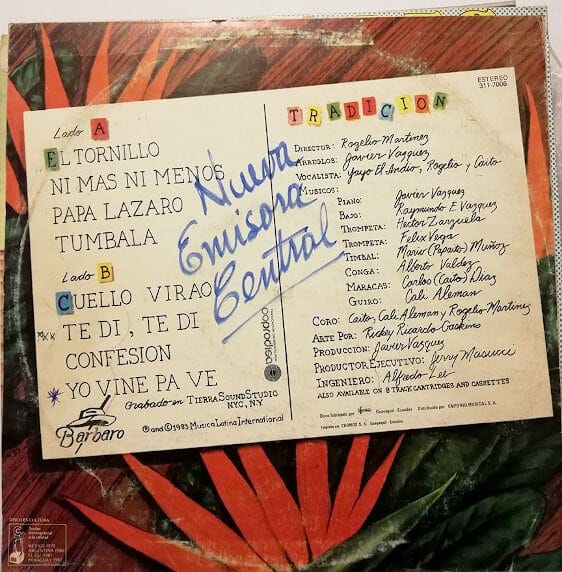 ESTEREO
311-7006
Lado A
EL TORNILLO
NI MAS NI MENOS
PAPA LAZARO
TUMBALA
Lado B
CUELLO VIRAO
TE DI, TE DI
CONFESION
YO VINE PA VE
Grabado en TIERRA SOUND STUDIO
NYC, N.Y.
Bárbaro
® and © 1983 Musica Latina International
Nueva
Emisora
Central
TRADICION
DIRECTOR: Rogelio Martinez
ARREGLOS: Javier Vazquez
VOCALISTA: Yayo El Indio, Rogelio y Caito
MUSICOS:
PIANO: Javier Vazquez
BAJO: Raymundo E. Vazquez
TROMPETA: Hector Zarzuela
TROMPETA: Felix Vega
TIMBAL: Mario (Papaito) Muñoz
CONGA: Alberto Valdez
MARACAS: Carlos (Caito) Diaz
GUIRO: Cali Aleman
CORO: Caito, Cali Aleman y Rogelio Martinez
ARTE POR: Rickey Ricardo Gaskins
PRODUCCION: Javier Vazquez
PRODUCTOR EJECUTIVO: Jerry Masucci
INGENIERO: Alfredo Lee
ALSO AVAILABLE ON 8 TRACK CARTRIDGES AND CASSETTES
Disco fabricado por Guayaquil - Ecuador Distribuido por EMPORIO MUSICAL S.A.
Impreso en CROMOS S.A. Guayaquil - Ecuador
coprodisa
DISCO ES CULTURA
Trofeo
Internacional
a la calidad
MEXICO 1979
ARGENTINA 1980
EE. UU. 1981
PARAGUAY 1982